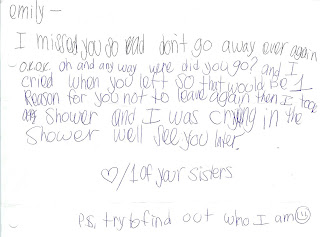 emily -
I missed you so bad don't go away ever again
okok oh and any way were did you go? and I
cried when you left so that would be 1
Reason for you not to leave again then I took
Shower and I was crying in the
Shower well see you later.
♡/1 of your sisters
P.S. try to find out who I am